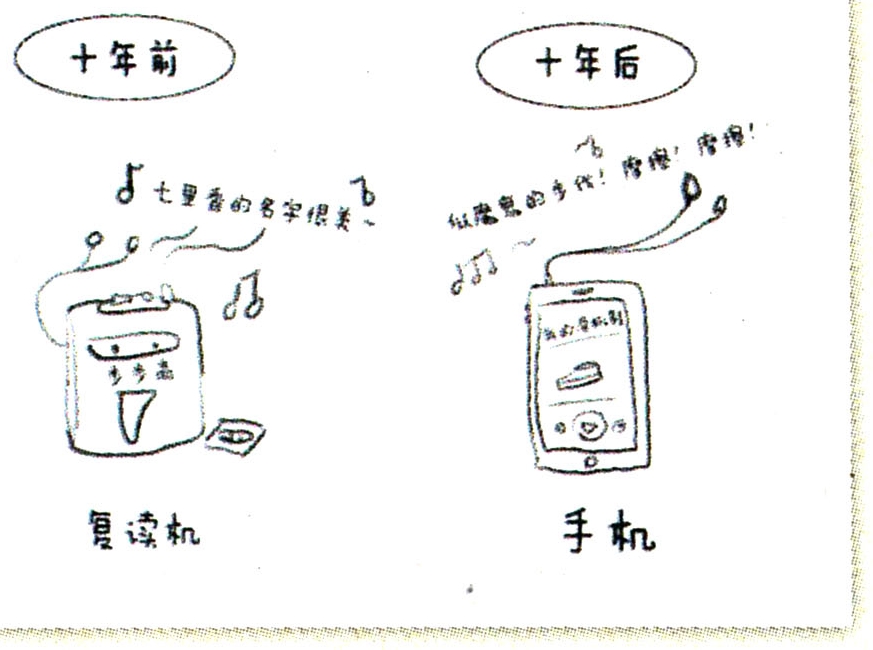 十年前
十年后
七里香的名字很美~
似魔鬼的步伐！摩擦！摩擦！
步步高
我的滑板鞋
复读机
手机